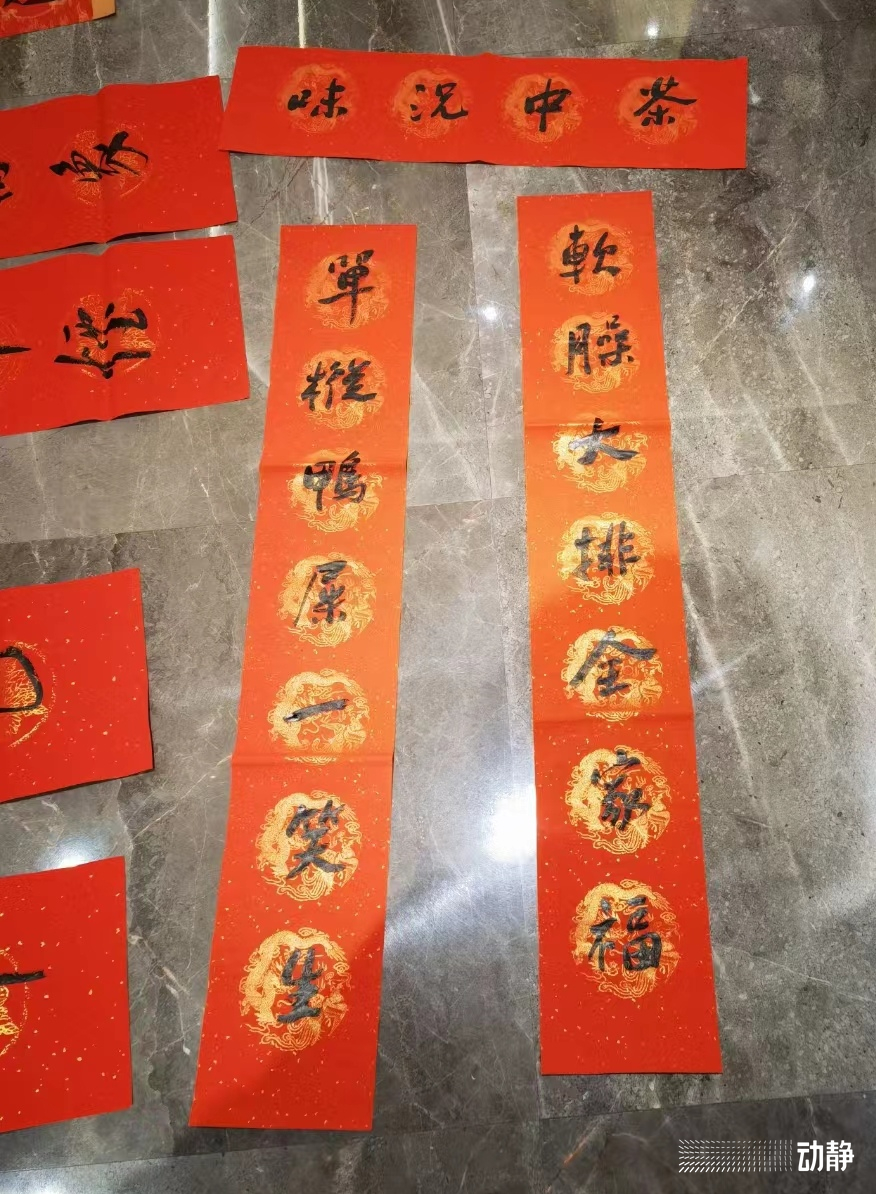 茶中況味
軟臊大排全家福
單樅鴨屎一笑生
动静